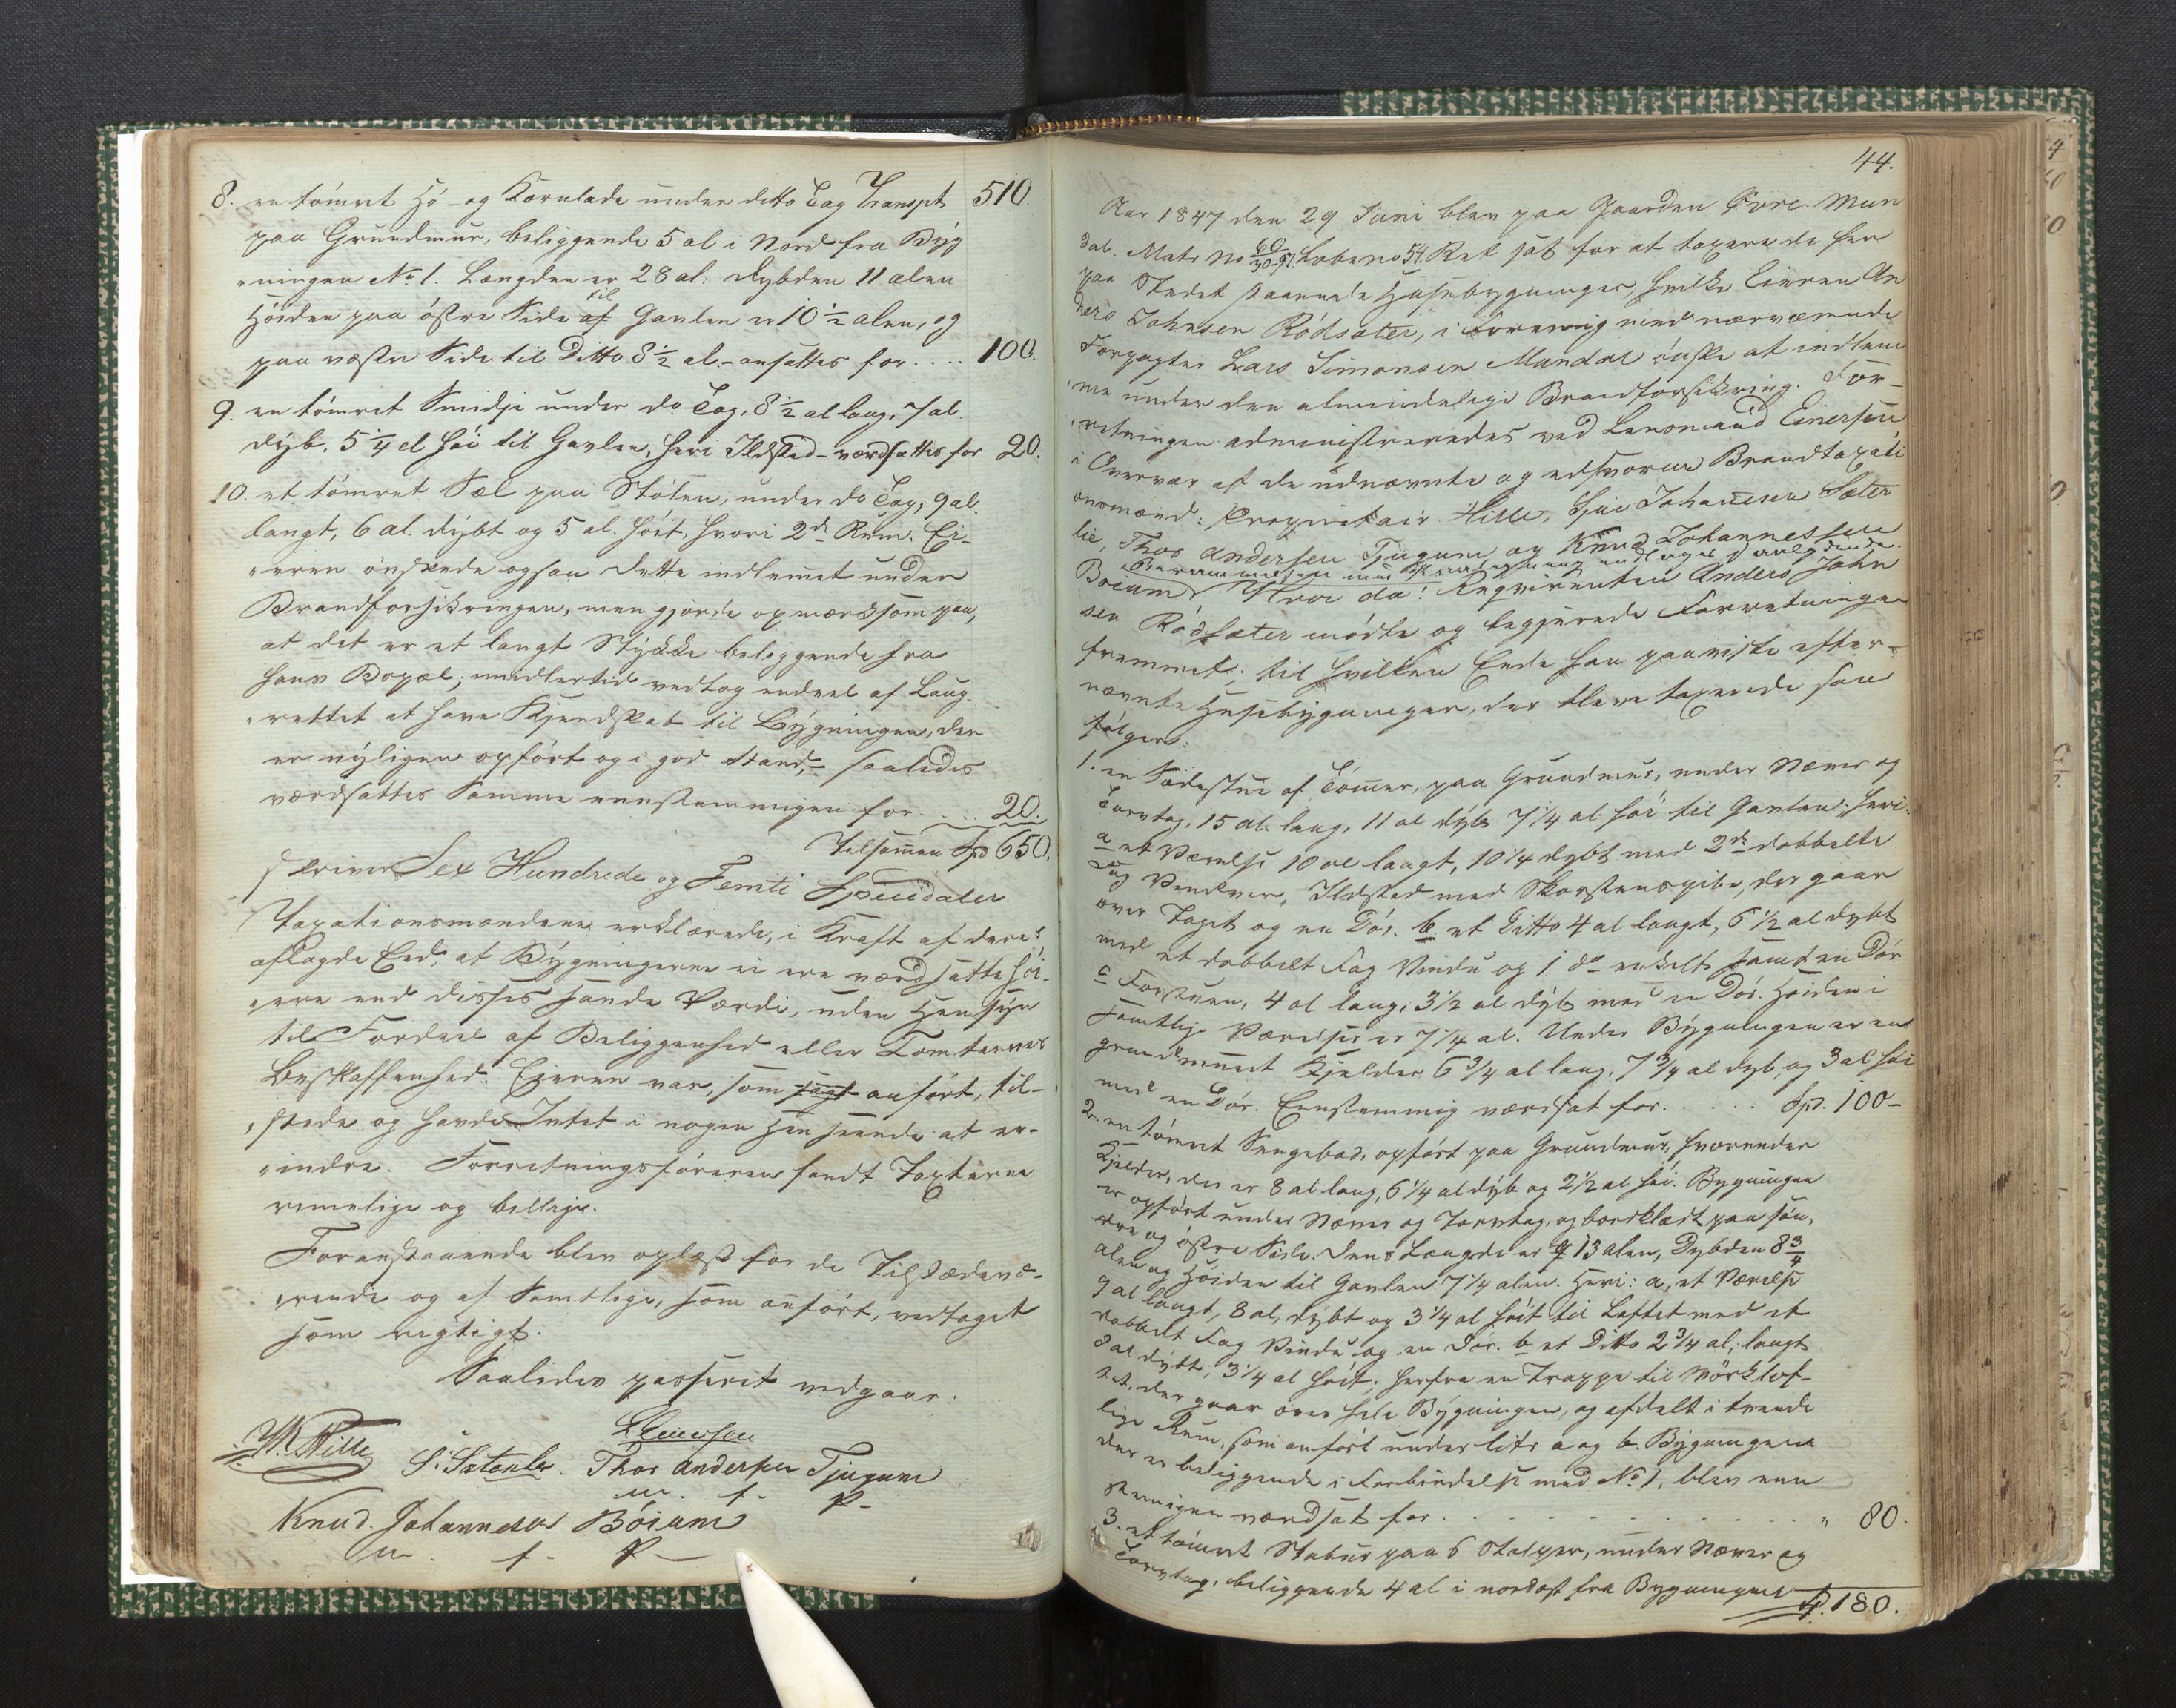 8. en tömret Hö- og Kornlade under ditto Tag Transpt. 510.
paa Grundmuur, beliggende 5 al i Nord fra Byg
"ningen No 1. Længden er 28 al: Dybden 11 alen
Höiden paa östre Side af til Gavlen er 10 1/2 alen, og
paa vestre Side til Ditto 8 1/2 al - ansattes for .... 100.
9. en tömret Smidje under do Tag, 8 1/2 al lang, 7 al.
dyb, 5 1/4 al höi til Gavlen, heri Ildsted - værdsattes for 20.
10. et tömret Sæl paa Stölen, under do Tag, 9 al.
langt, 6 al. dybt og 5 al. höit, hvori 2de Rum. Ei-
"eren önskede ogsaa dette indlemmet under
Brandforsikringen, men gjorde opmærksom paa,
at det er et langt Stykke beliggende fra
hans Bopæl; imidlertid vedtog endeel af Laug-
"rettet at have Kjendskab til Bygningen, der
er nyligen opfört og i god Stand, - saaledes
værdsattes Samme eenstemmigen for .... 20.
Tilsammen Spd 650.
skriver Sex Hundrede og Femti Speciedaler.
Taxationsmændene erklærede, i Kraft af deres
aflagde Eed, at Bygningerne ei ere værdsatte höi-
"ere end disses sande Værdi, uden Hensyn
til Fordeel af Beliggenhed eller Tomternes
Beskaffenhed. Ejeren var, som sagt anfört, til-
"stede og havde Intet i nogen Henseende at er-
"indre. Forretningsföreren fandt Taxterne
rimelige og billige.
Foranstaaende blev oplæst for de Tilstedevæ-
"rende og af Samtlige, som anfört, vedtaget
som rigtigt.
Saaledes passeret vedgaar.
Einersen
Hille S. Sæterlie. Thor Andersen Tjugum
m. f. P-
Knud. Johannesen Böium
m. f. P-
44.
Aar 1847 den 29 Juni blev paa Gaarden Övre Mun
dal. Matr No 60/30-91. Löbeno 54. Ret sat for at taxere de her
paa Stedet staaende Huusebygninger, hvilke Eieren An
ders Johnsen Rödsæter, i Forening med nærværende
Forpagter Lars Simonsen Mundal önske at indlem
"me under den almindelige Brandforsikring. For-
"retningen administreredes ved Lensmand Einersen
i Overvær af de udnævnte og edsvorne Brandtaxati
onsmænd: Proprietair Hille, Sjur Johannesen Sæter
lie, Thor Andersen Tjugum og Knud Johannessen
Böium. Hvor da! Reqvirenten Anders John
sen Rödsæter mödte og begjærede Forretningen
fremmet; til hvilken Ende han paaviste efter-
nævnte Huusebygninger, der bleve taxerede som
fölger:
1. en Sædestue af Tömmer, paa Grundmuur, under Næver og
Torvtag, 15 al. lang, 11 al dyb 7 1/4 al höi til Gavlen; heri:
a et Værelse 10 al langt, 10 1/4 dybt med 2de dobbelte
Fag Vinduer, Ildsted med Skorsteenspibe, der gaar
over Taget og en Dör. b et Ditto 4 al langt, 6 1/2 al dybt
med et dobbelt Fag Vindu og 1 do enkelt samt en Dör
c Forstuen, 4 al lang, 3 1/2 al dyb med en Dör. Höiden i
samtlige Værelser er 7 1/4 al. Under Bygningen er en
grundmuret Kjelder 6 3/4 al lang, 7 3/4 al dyb, og 3 al höi
med en Dör. Eenstemmig værdsat for ..... Spd. 100-
2. en tömret Sengebod, opfört paa Grundmuur, hvorunder
Kjelder, der er 8 al lang, 6 1/4 al dyb og 2 1/2 al höi. Bygningen
er opfört under Næver og Torvtag, og bordklædt paa sön-
dre og östre Side. Dens Længde er 13 alen, Dybden 8 3/4
alen og Höiden til Gavlen 7 1/4 alen. Heri: a, et Værelse
9 al langt, 8 al, dybt og 3 1/4 al höit til Loftet med et
dobbelt Fag Vindu og en Dör. b et Ditto 2 3/4 al, langt
8 al dybt, 3 1/4 al höit; herfra en Trappe til Mörklof-
tet, der gaar over hele Bygningen, og afdelt i tvende
lige Rum, som anfört under litr a og b. Bygningen
der er beliggende i Forbindelse med No 1, blev een
stemmigen værdsat for ............ " 80.
3. et tömret Stabur paa 6 Stolper, under Næver og
Torvtag, beliggende 4 al i nordost fra Bygningen
Sp. 180.